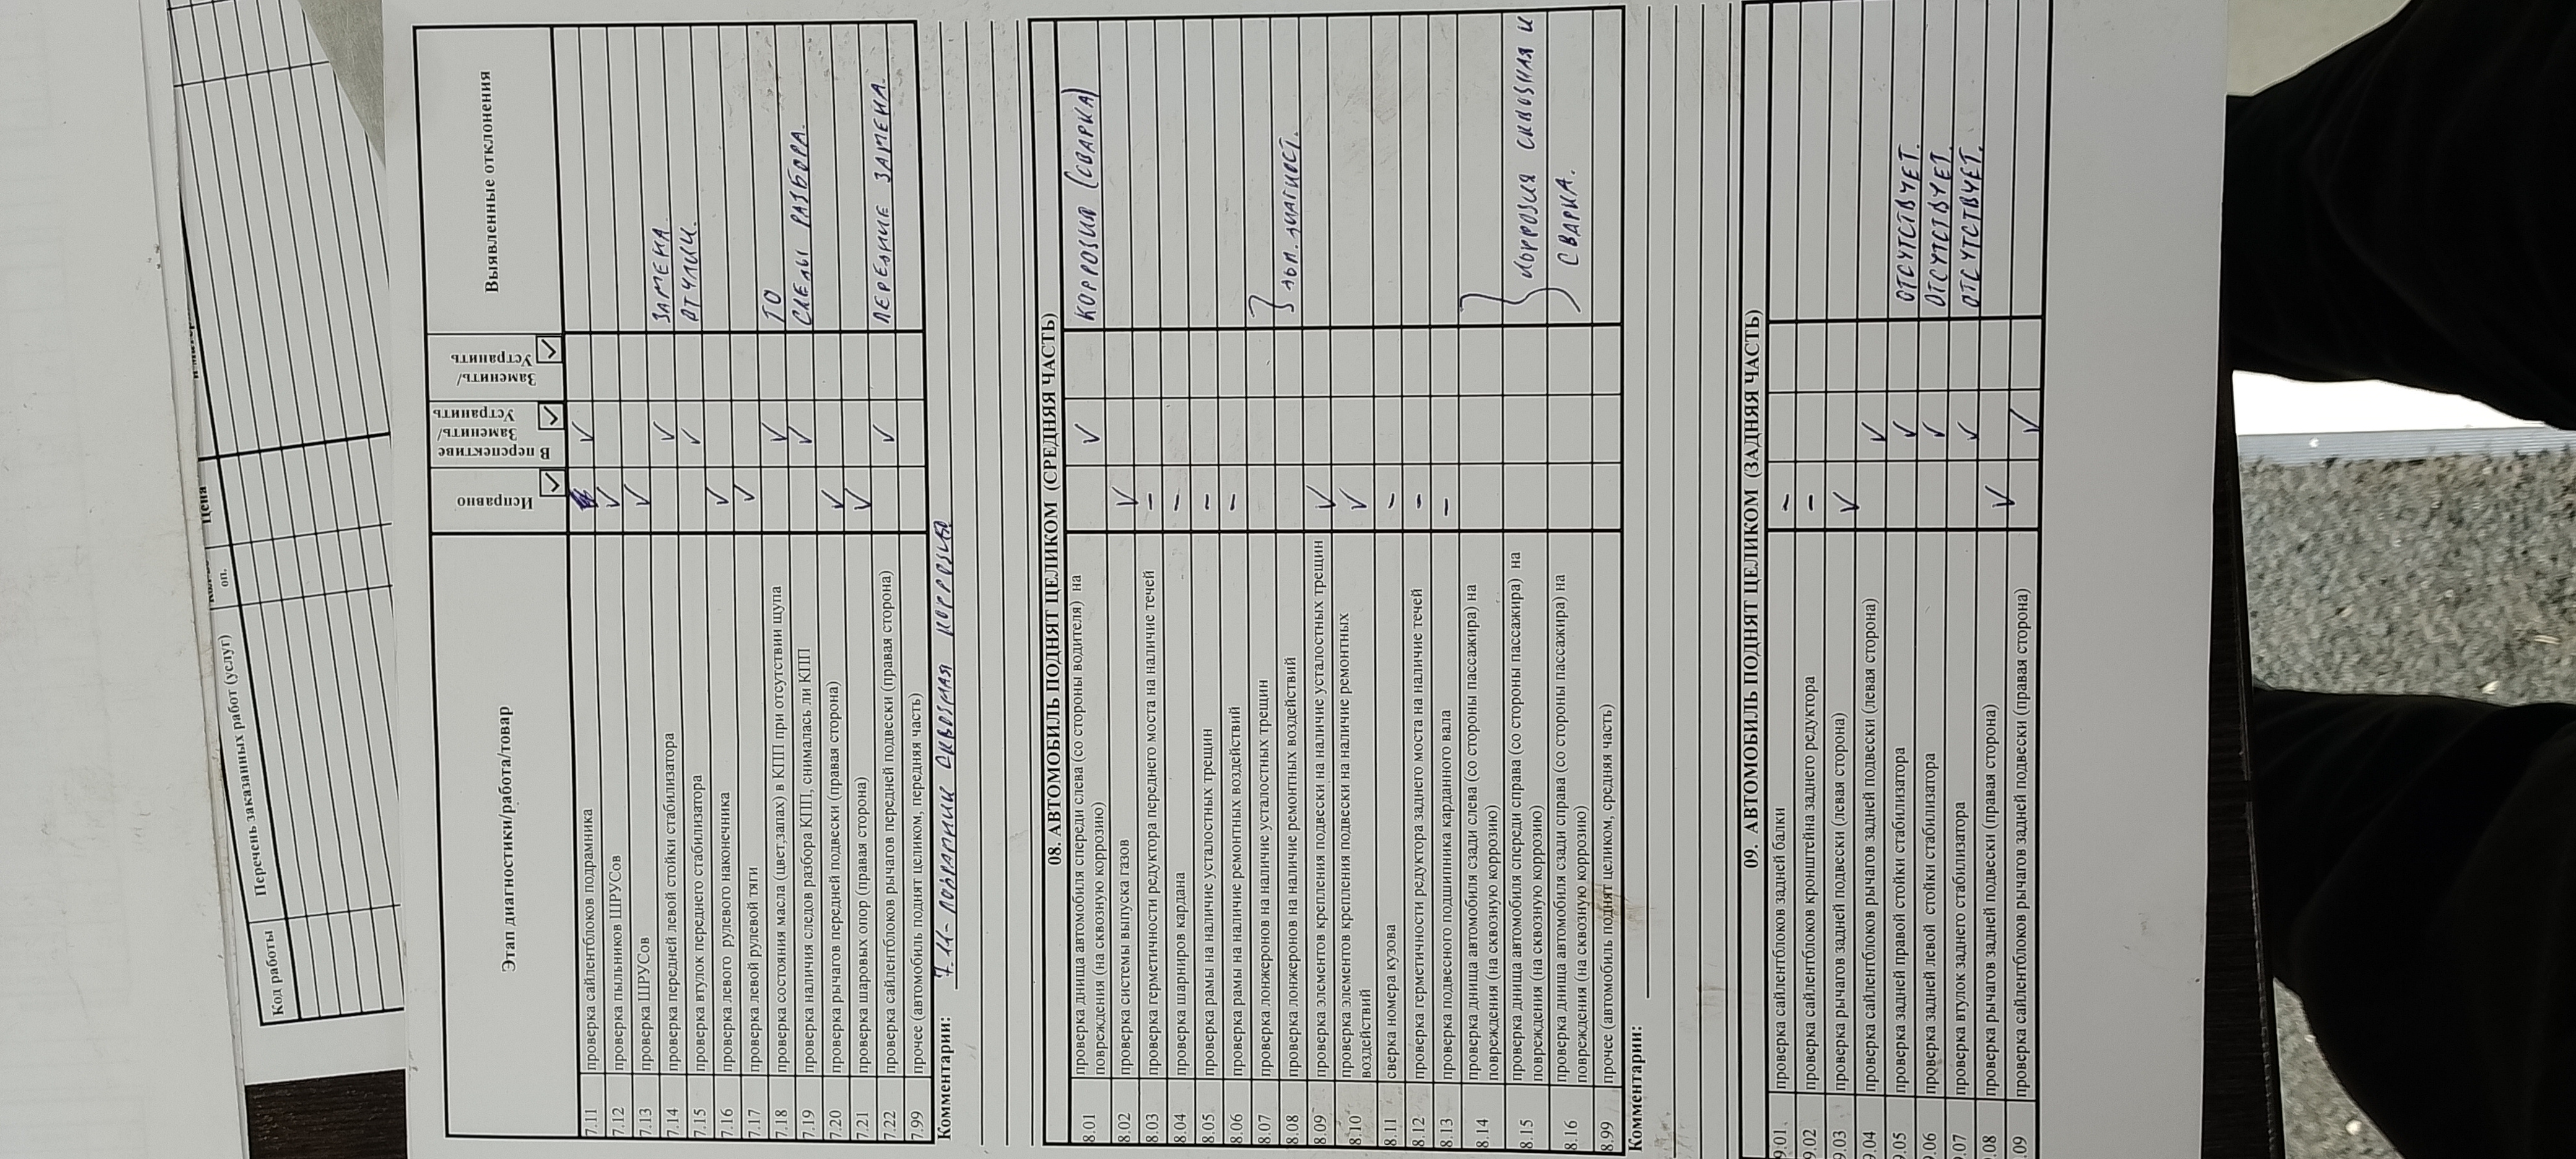 Перечень заказанных работ (услуг)
Код работы
оп.
Цена
Этап диагностики/работа/товар
Исправно
В перспективе Заменить/Устранить
Заменить/Устранить
Выявленные отклонения
7.11 проверка сайлентблоков подрамника
7.12 проверка пыльников ШРУСов
7.13 проверка ШРУСов
7.14 проверка передней левой стойки стабилизатора ЗАМЕНА
7.15 проверка втулок переднего стабилизатора ВТУЛКИ.
7.16 проверка левого рулевого наконечника
7.17 проверка левой рулевой тяги
7.18 проверка состояния масла (цвет,запах) в КПП при отсутствии щупа ТО
7.19 проверка наличия следов разбора КПП, снималась ли КПП СЛЕДЫ РАЗБОРА.
7.20 проверка рычагов передней подвески (правая сторона)
7.21 проверка шаровых опор (правая сторона)
7.22 проверка сайлентблоков рычагов передней подвески (правая сторона) ПЕРЕДНИЕ ЗАМЕНА.
7.99 прочее (автомобиль поднят целиком, передняя часть)
Комментарии: 7.11 - ПОДРАМНИК СКВОЗНАЯ КОРРОЗИЯ
08. АВТОМОБИЛЬ ПОДНЯТ ЦЕЛИКОМ (СРЕДНЯЯ ЧАСТЬ)
8.01 проверка днища автомобиля спереди слева (со стороны водителя) на КОРРОЗИЯ (СВАРКА)
повреждения (на сквозную коррозию)
8.02 проверка системы выпуска газов
8.03 проверка герметичности редуктора переднего моста на наличие течей –
8.04 проверка шарниров кардана –
8.05 проверка рамы на наличие усталостных трещин –
8.06 проверка рамы на наличие ремонтных воздействий –
8.07 проверка лонжеронов на наличие усталостных трещин
8.08 проверка лонжеронов на наличие ремонтных воздействий
8.09 проверка элементов крепления подвески на наличие усталостных трещин
8.10 проверка элементов крепления подвески на наличие ремонтных
воздействий
8.11 сверка номера кузова –
8.12 проверка герметичности редуктора заднего моста на наличие течей –
8.13 проверка подвесного подшипника карданного вала –
8.14 проверка днища автомобиля сзади слева (со стороны пассажира) на
повреждения (на сквозную коррозию)
8.15 проверка днища автомобиля спереди справа (со стороны пассажира) на КОРРОЗИЯ СКВОЗНАЯ И
повреждения (на сквозную коррозию)
8.16 проверка днища автомобиля сзади справа (со стороны пассажира) на СВАРКА.
повреждения (на сквозную коррозию)
8.99 прочее (автомобиль поднят целиком, средняя часть)
Комментарии:
09. АВТОМОБИЛЬ ПОДНЯТ ЦЕЛИКОМ (ЗАДНЯЯ ЧАСТЬ)
9.01 проверка сайлентблоков задней балки –
9.02 проверка сайлентблоков кронштейна заднего редуктора –
9.03 проверка рычагов задней подвески (левая сторона)
9.04 проверка сайлентблоков рычагов задней подвески (левая сторона)
9.05 проверка задней правой стойки стабилизатора ОТСУТСТВУЕТ.
9.06 проверка задней левой стойки стабилизатора ОТСУТСТВУЕТ
9.07 проверка втулок заднего стабилизатора ОТСУТСТВУЕТ.
.08 проверка рычагов задней подвески (правая сторона)
.09 проверка сайлентблоков рычагов задней подвески (правая сторона)